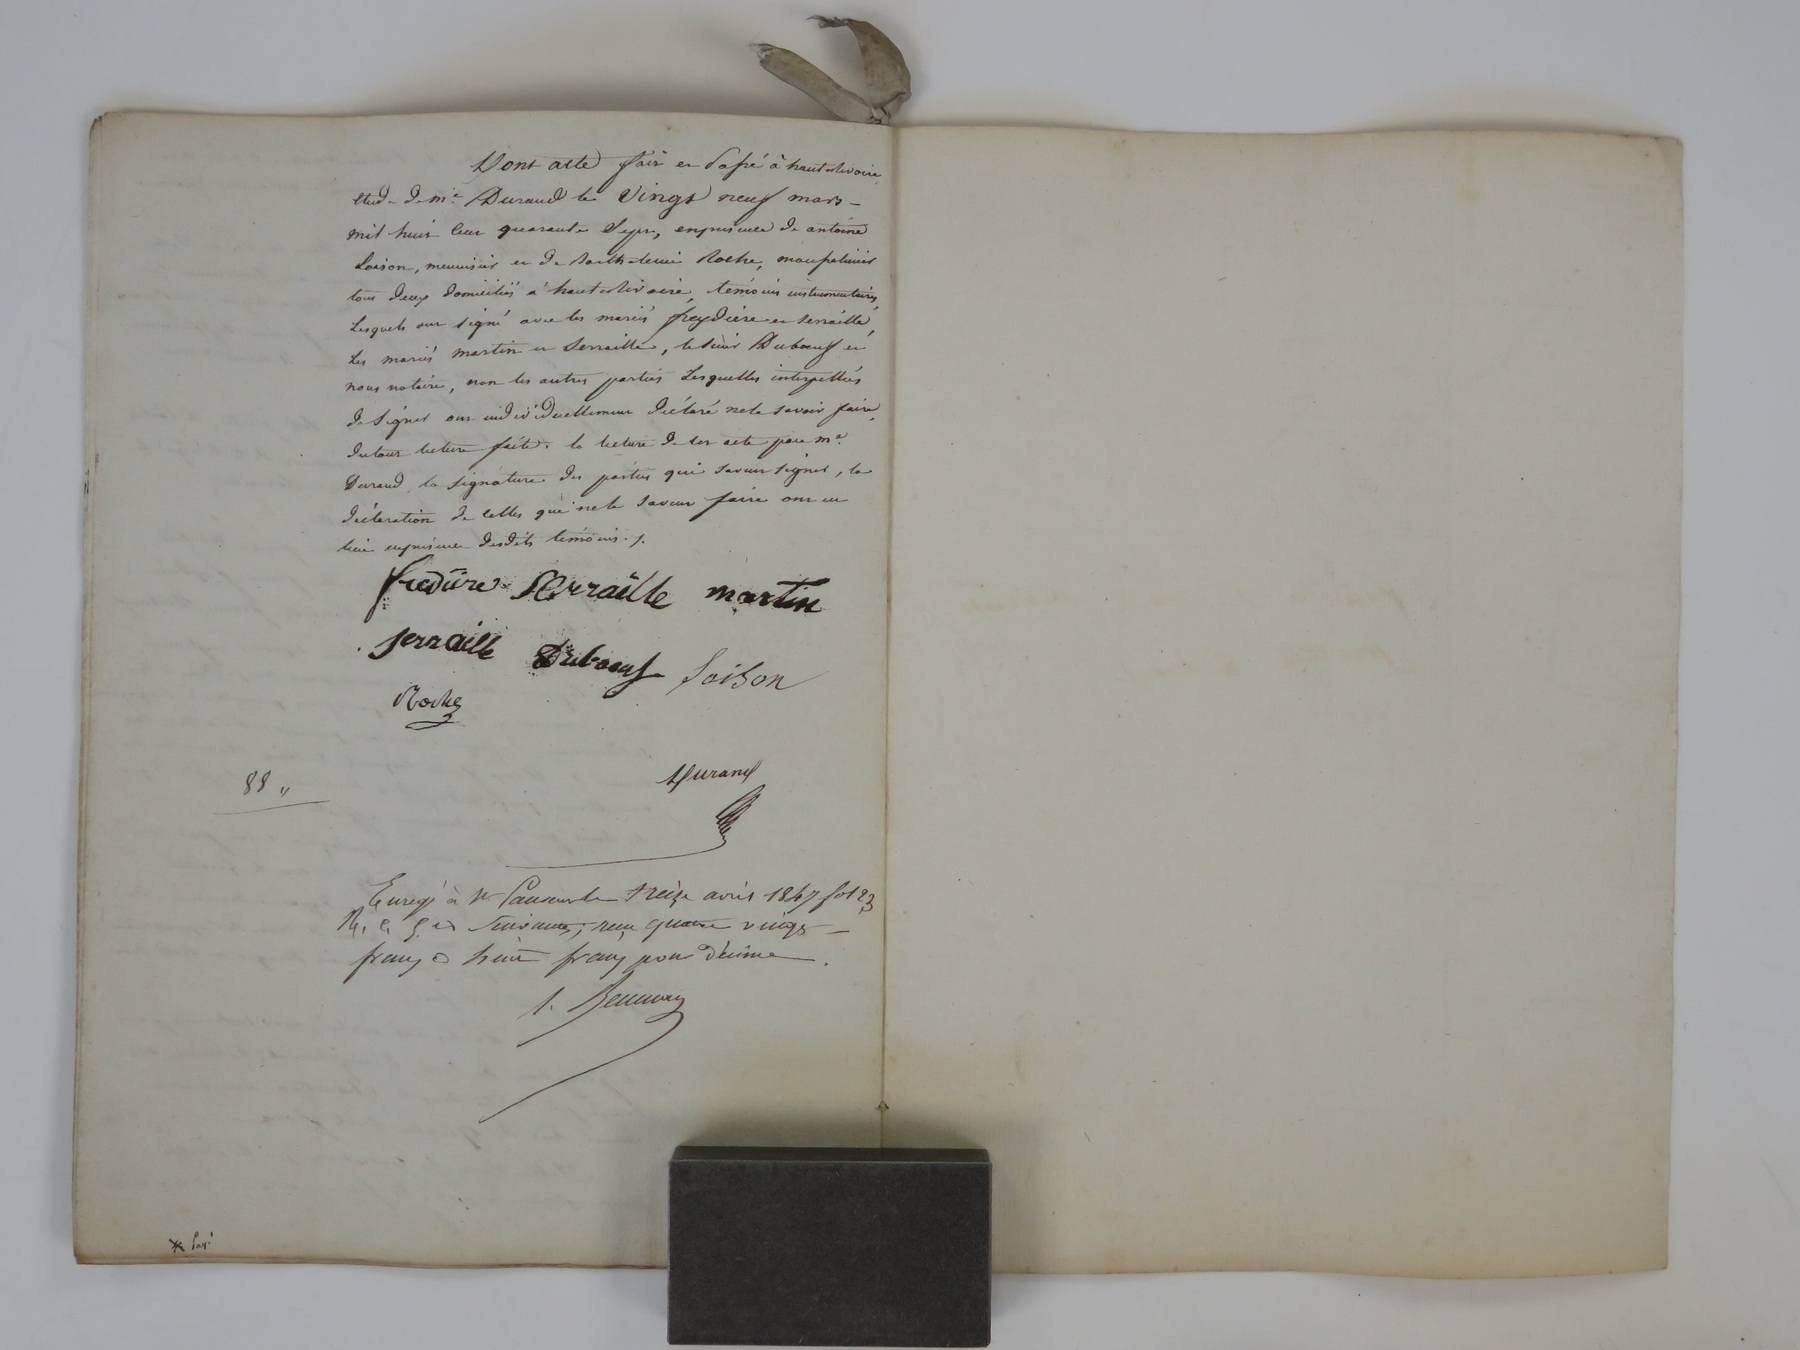 Dont acte fait et passé à hauterivoire
etude de me Durand le vingt neuf mars
mil huit cent quarante sept, en presence de antoine
Loison, menuisier et de Barthelemi Roche, marechal
tous deux domiciliés à hauterivoire, témoins instrumentaires,
Lesquels ont signé avec les mariés freydière et serraille,
Les mariés martin et Serraille, le sieur Duboeuf et
nous notaire, non les autres parties Lesquelles interpellées
de signer ont individuellement déclaré ne le savoir faire,
du tout lecture faite. la lecture de cet acte par me
Durand la signature des parties qui savent signer, la
déclaration de celles qui ne le savent faire ont eu
lieu en presence desdits témoins ./.
fredière Serraille martin
serraille Duboeuf Loison
Roche
88 "
Durand
Enregé à St Laurent le treize avril 1847 fol 23
R. c. 5 et suivantes, reçu quatre vingt
francs et huit francs pour décime.